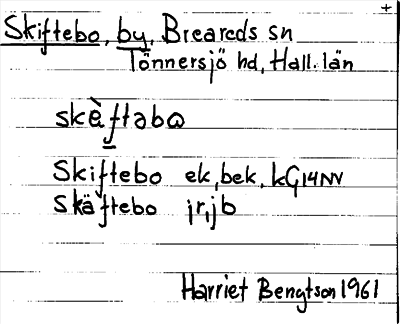 +
Skiftebo, by, Breareds sn
Tönnersjö hd, Hall. län
skè̀ftəbɷ
Skiftebo ek, bek, kG14NV
Skäftebo jr, jb
Harriet Bengtson 1961